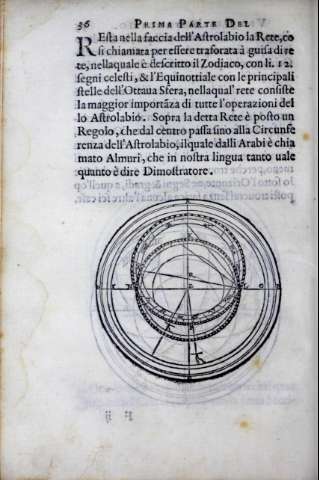 36 PRIMA PARTE DEL
REsta nella faccia dell'Astrolabio la Rete, co
si chiamata per essere traforata à guisa di re
te, nella quale è descritto il Zodiaco, con li. 12.
segni celesti, & l'Equinottiale con le principali
stelle dell'Ottaua Sfera, nellaqual' rete consiste
la maggior importãza di tutte l'operationi del
lo Astrolabio. Sopra la detta Rete è posto un
Regolo, che dal centro passa sino alla Circunfe
renza dell'Astrolabio, ilquale dalli Arabi è chia
mato Almuri, che in nostra lingua tanto uale
quanto è dire Dimostratore.